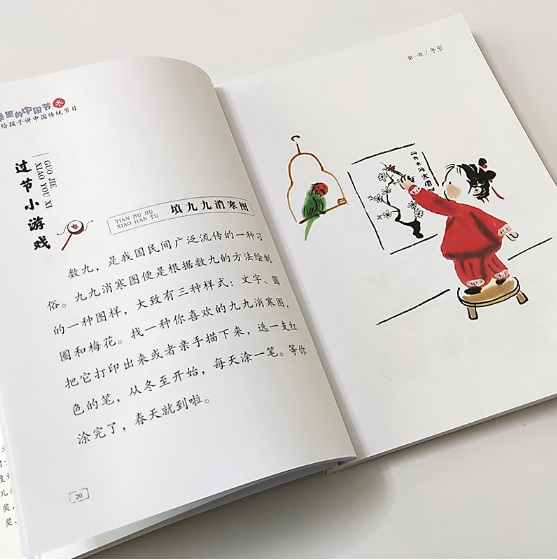 里的中国节 冬
给孩子讲中国传统节日
过节小游戏
GUO JIE
XIAO YOU XI
TIAN JIU JIU
XIAO HAN TU
填九九消寒图
数九，是我国民间广泛流传的一种习
俗。九九消寒图便是根据数九的方法绘制
的一种图样，大致有三种样式：文字、圆
圈和梅花。找一种你喜欢的九九消寒图，
把它打印出来或者亲手描下来，选一支红
色的笔，从冬至开始，每天涂一笔。等你
涂完了，春天就到啦。
20
第一章/冬至
九九消寒图